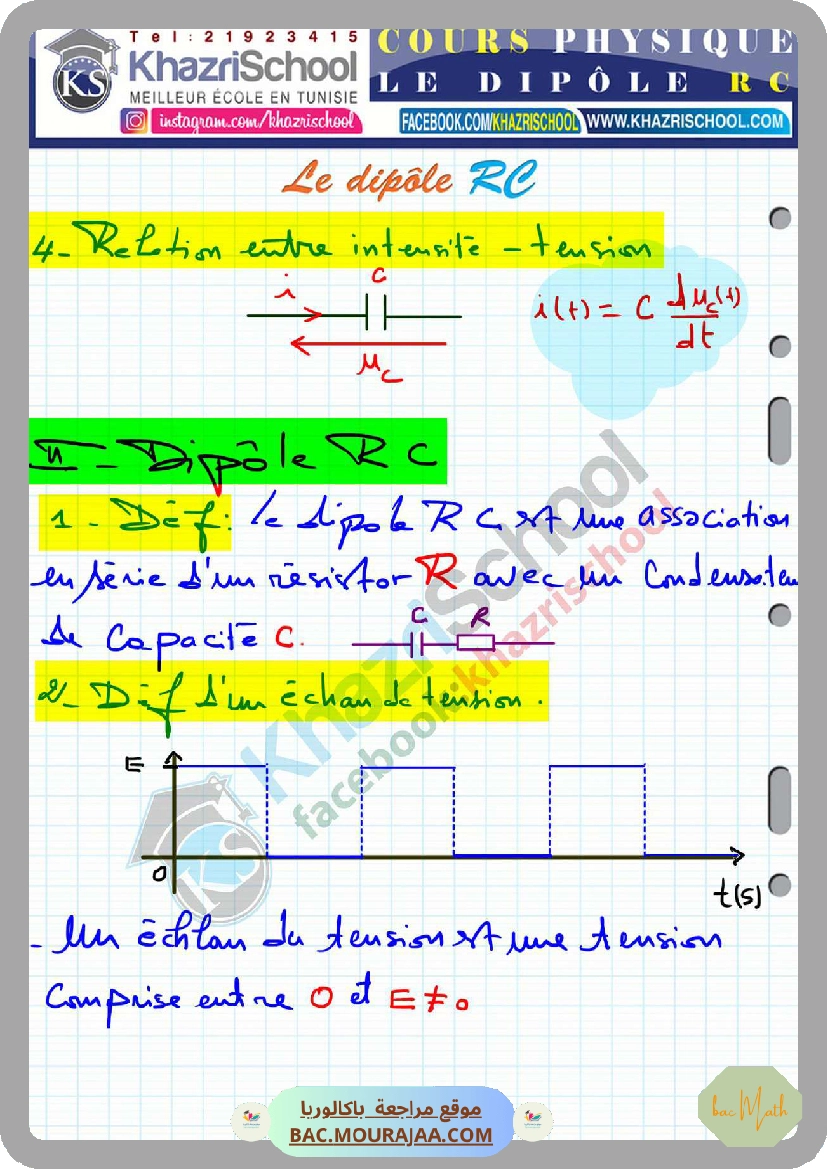 Tel:21923415
KhazriSchool
MEILLEUR ÉCOLE EN TUNISIE
KS
instagram.com/khazrischool
COURS PHYSIQUE
LE DIPÔLE RC
FACEBOOK.COM/KHAZRISCHOOL
WWW.KHAZRISCHOOL.COM
Le dipôle RC
4- Relation entre intensité - tension
i
C
u_C
i(t) = C du_C(t)/dt
II - Dipôle RC
1 - Déf: le dipole RC est une association
en série d'un résistor R avec un Condensateu
de Capacité C.
C R
2- Déf d'un échan de tension.
E
O
t(s)
- Un échlan du tension est une tension
Comprise entre 0 et E ≠ 0
KhazriSchool
facebook:khazrischool
KS
موقع مراجعة باكالوريا
BAC.MOURAJAA.COM
bac Math